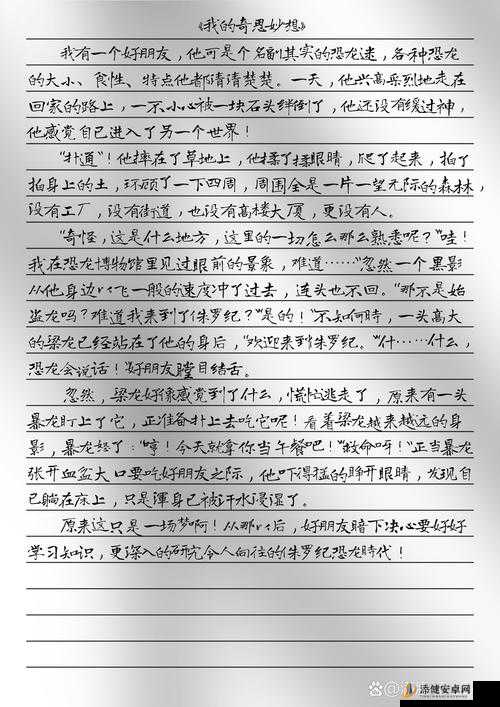 《我的奇思妙想》
我有一个好朋友，他可是个名副其实的恐龙迷，各种恐龙
的大小、食性、特点他都清清楚楚。一天，他兴高采烈地走在
回家的路上，一不小心被一块石头绊倒了，他还没有缓过神，
他感觉自己进入了另一个世界！
“扑通”！他摔在了草地上，他揉了揉眼睛，爬了起来，拍了
拍身上的土，环顾了一下四周，周围全是一片一望无际的森林，
没有工厂，没有街道，也没有高楼大厦，更没有人。
“奇怪，这是什么地方，这里的一切怎么那么熟悉呢？”哇！
我在恐龙博物馆里见过眼前的景象，难道……”忽然一个黑影
从他身边以飞一般的速度冲了过去，连头也不回。“那不是始
盗龙吗？难道我来到了侏罗纪？”“是的！”不如何時，一头高大
的梁龙已经站在了他的身后，“欢迎来到侏罗纪。”什……什么，
恐龙会说话！”好朋友瞠目结舌。
忽然，梁龙好像感觉到了什么，慌忙逃走了，原来有一头
暴龙盯上了它，正准备扑上去吃它呢！看着梁龙越来越远的身
影，暴龙怒了：“哼！今天就拿你当午餐吧！”“救命呀！”正当暴龙
张开血盆大口要吃好朋友之际，他吓得猛的睁开眼睛，发现自
己躺在床上，只是渾身已被汗水浸湿了。
原来这只是一场梦啊！从那以后，好朋友暗下决心要好好
学习知识，更深入的研究令人向往的侏罗纪恐龙時代！
添健安卓网